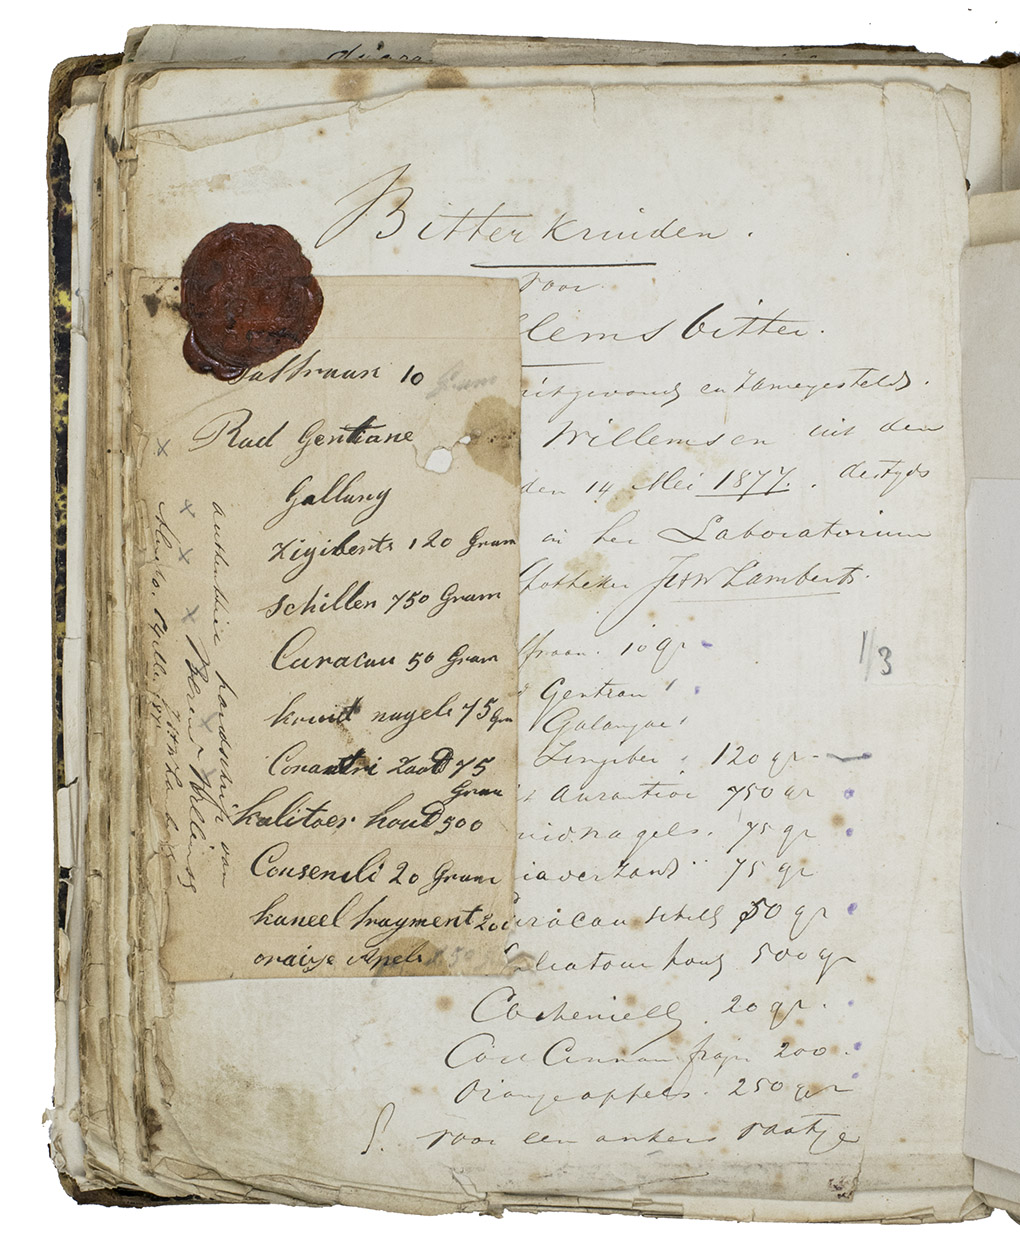 Bitterkruiden.
voor
lemsbitter.
uitgevonden en zamengesteld.
Willemsen uit den
den 14 Mei 1877. destyds
in het Laboratorium
potheker J.H.W. Lamberts.
ffraan. 10 gr
Gentian
Galangae
Zingiber 120 gr
Aurantior 750 gr
uidnagels. 75 gr
iaverzand 75 gr
uracau schill 50 gr
liatour hout 500 gr
Cochenielle. 20 gr.
Cort Cinnam fragm 200.
Oranjeappels. 250 gr
S. voor een ankers vaatje
1/3
Saffraan 10 Gram
Rad Gentiane
Gallung
Zigiberts 120 Gram
Schillen 750 Gram
Curacau 50 Gram
kruid nagels 75 Gm
Coriantri Zaad 75
Gram
kalitoer houd 500
Consenili 20 Gram
kaneel fragment 200
oranje Apels 250
authentiek handschrift van
Berend Willemsen